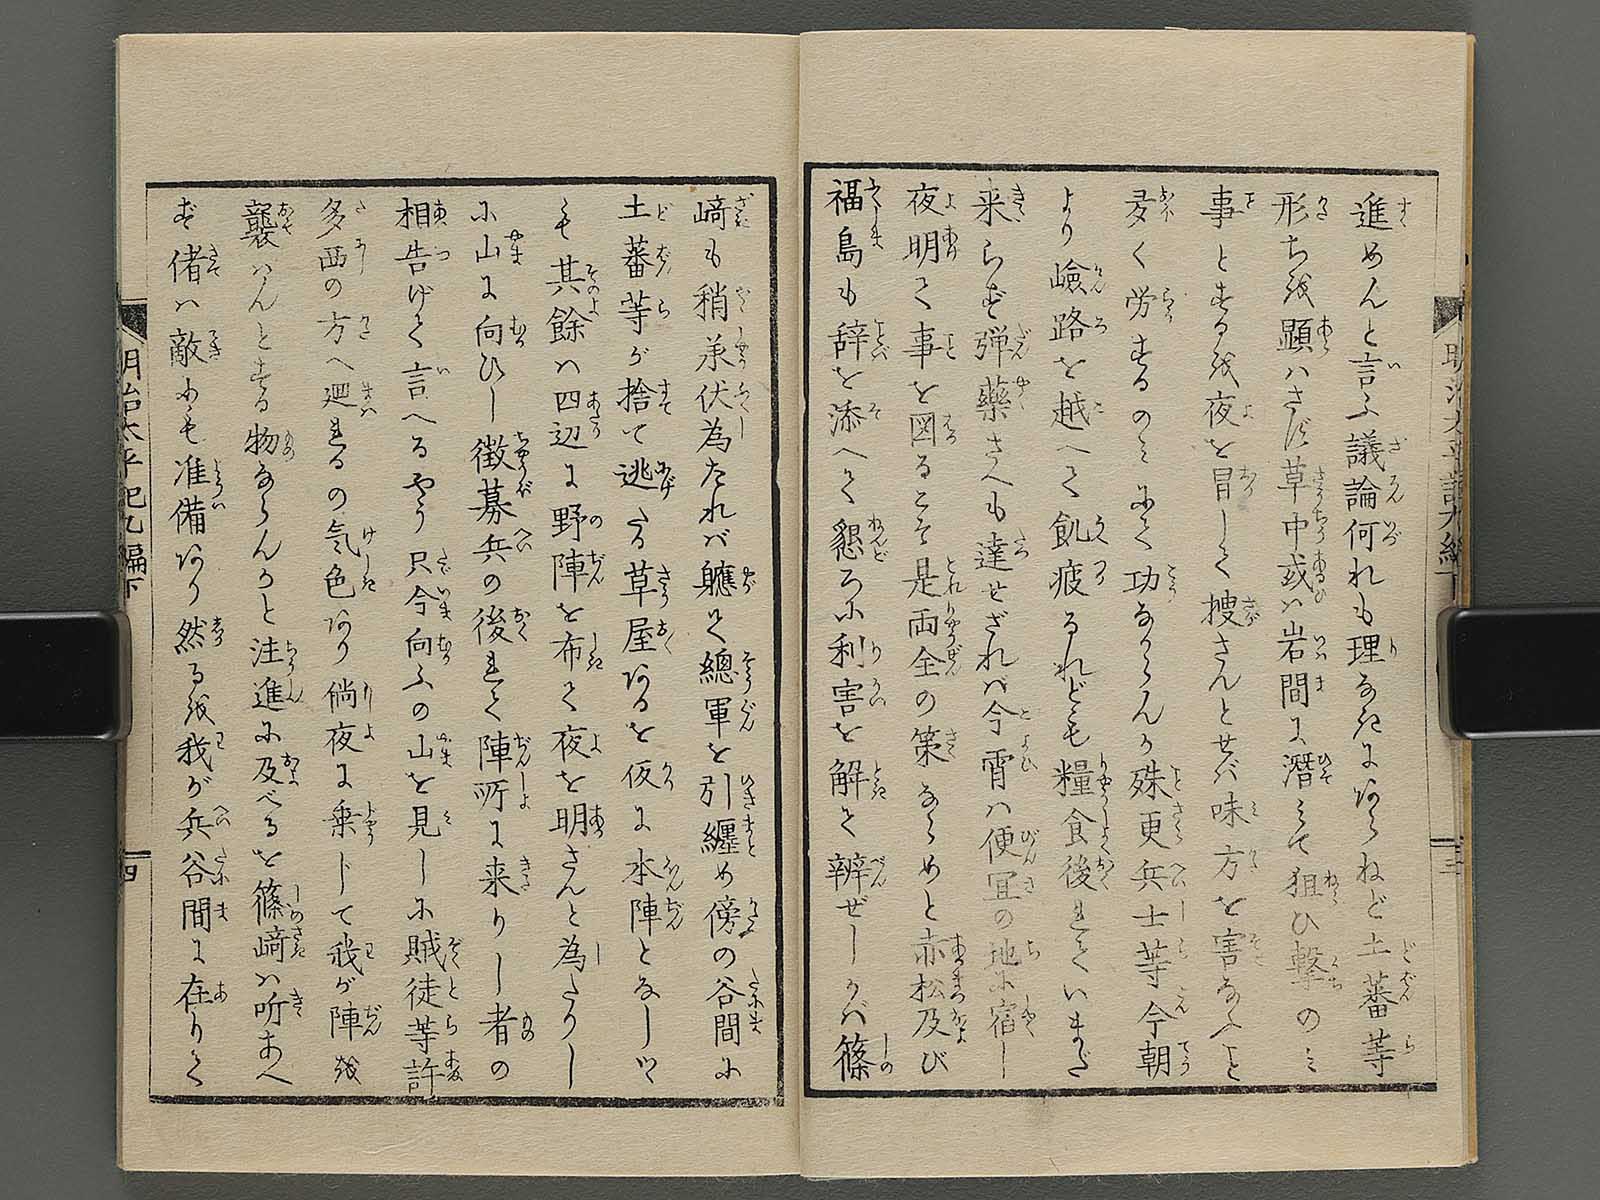 進めんと言ふ議論何れも理なきにあらねど土蕃等
形ちを顕ハさず草中或ハ岩間に潜みて狙ひ撃のミ
事とする故夜を冒して捜さんとせバ味方を害なふこと
多く労するのミにて功なからんか殊更兵士等今朝
より嶮路を越へて飢疲るれども糧食後れていまだ
来らず弾薬さへも達せざれバ今宵ハ便宜の地に宿し
夜明て事を図るこそ是両全の策ならめと赤松及び
福島も辞を添へて懇ろに利害を解て辨ぜしかバ篠
﨑も稍承伏為たれバ軈て總軍を引纏め傍の谷間に
土蕃等が捨て逃たる草屋あるを仮に本陣となしツヽ
其餘ハ四辺に野陣を布て夜を明さんと為たりし
に山に向ひし徴募兵の後れて陣所に来りし者の
相告げて言へるやう只今向ふの山を見しに賊徒等許
多西の方へ廻れるの気色あり倘夜に乗じて我が陣を
襲ハんとする物ならんかと注進に及べるを篠﨑ハ听あへ
ず偖ハ敵にも准備あり然るを我が兵谷間に在りて
明治太平記九編下
四
明治太平記九編下
三